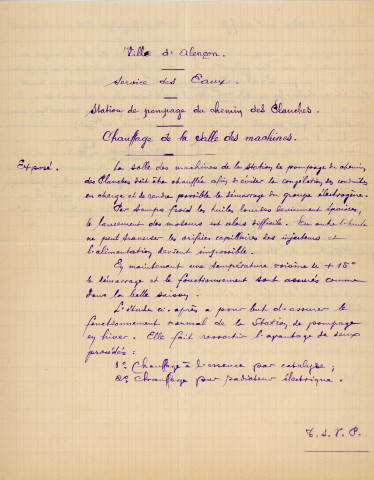 Ville d'Alençon.
Service des Eaux.
Station de pompage du chemin des Planches.
Chauffage de la salle des machines.
Exposé. La salle des machines de la station de pompage du chemin
des Planches doit être chauffée afin d'éviter la congélation des conduites
en charge et de rendre possible le démarrage du groupe électrogène.
Par temps froid les huiles lourdes deviennent épaisses,
le lancement des moteurs est alors difficile. En outre
ne peut traverser les orifices capillaires des injecteurs et
l'alimentation devient impossible.
En maintenant une température voisine de + 15°
le démarrage et le fonctionnement sont assurés comme
dans la belle saison.
L'étude ci-après a pour but d'assurer le
fonctionnement normal de la Station de pompage
en hiver. Elle fait ressortir l'avantage de deux
procédés :
1° Chauffage à l'essence par catalyse ;
2° Chauffage par radiateur électrique.
T. S. V. P.